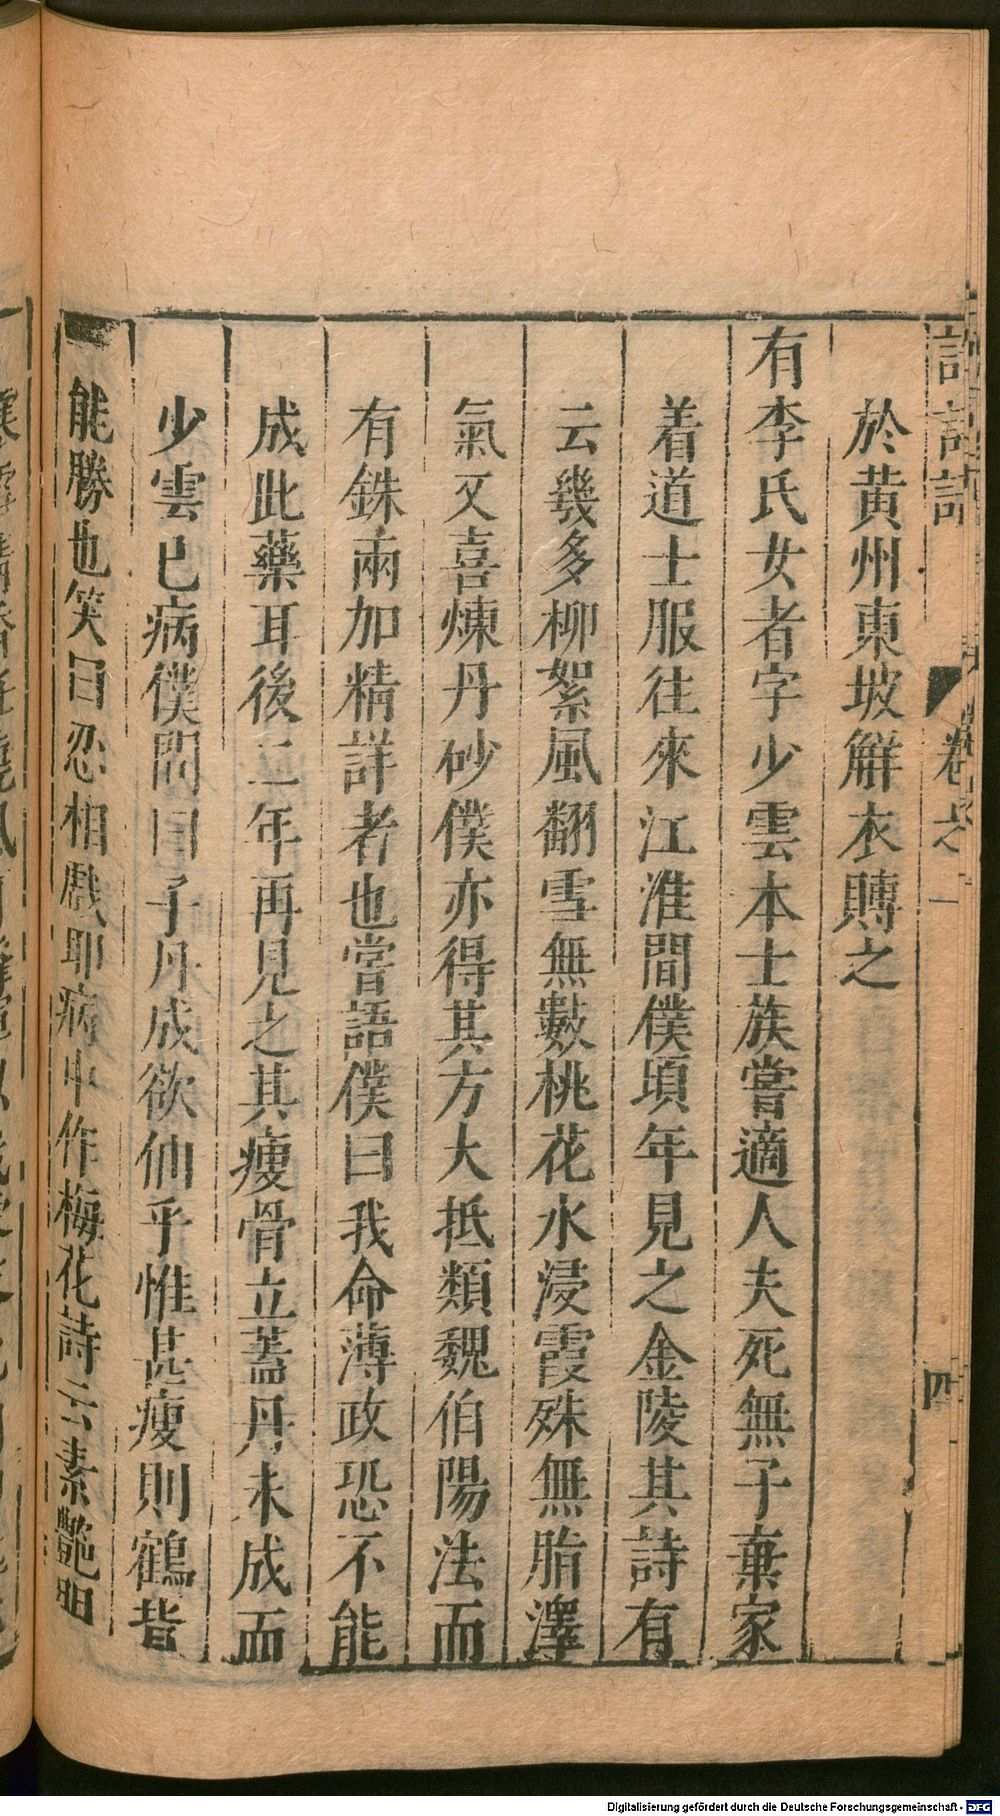 於黄州東坡觧衣賻之
有李氏女者字少雲本士族嘗適人夫死無子棄家
着道士服往來江淮間僕頃年見之金陵其詩有
云幾多柳絮風翻雪無數桃花水浸霞殊無脂澤
氣又喜煉丹砂僕亦得其方大抵類魏伯陽法而
有銖兩加精詳者也嘗語僕曰我命薄政恐不能
成此藥耳後二年再見之其瘦骨立蓋丹未成而
少雲已病僕問曰子丹成欲仙乎惟甚瘦則鶴背
能勝也笑曰忍相戲耶病中作梅花詩云素艷明
卷之一
四
Digitalisierung gefördert durch die Deutsche Forschungsgemeinschaft - DFG